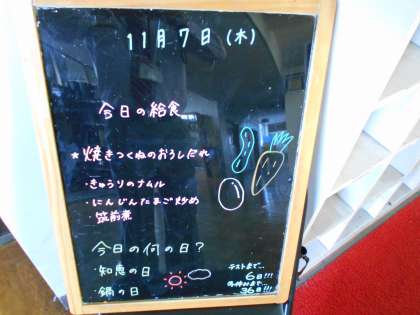 11月7日(木)
今日の給食
★焼きつくねのおろしだれ
・きゅうりのナムル
・にんじんたまご炒め
・筑前煮
今日の何の日?
・知恵の日
・鍋の日
テストまで...
6日!!!
冬休みまで...
36日!!!